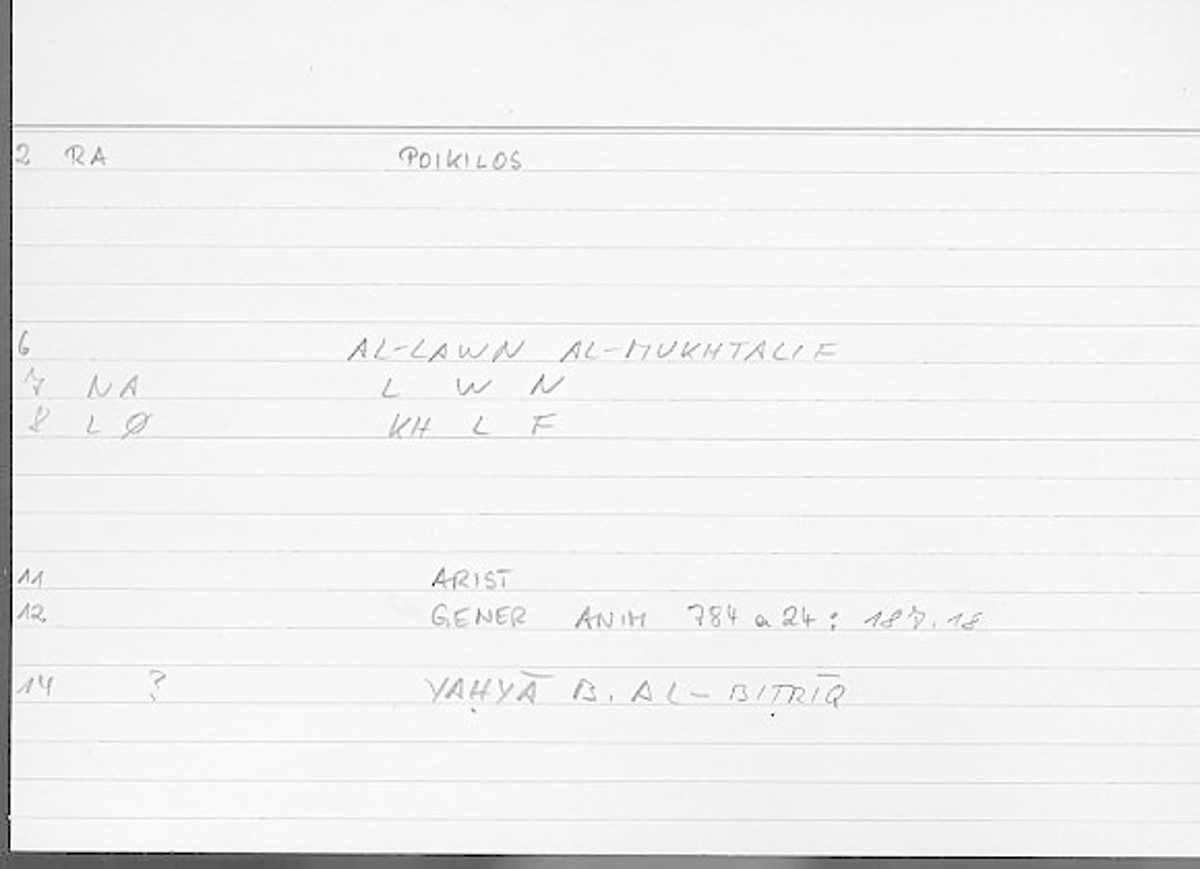 2 RA POIKILOS
6 AL-LAWN AL-MUKHTALIF
7 NA L W N
8 L Ø KH L F
11 ARIST
12 GENER ANIM 784 a 24 : 187.18
14 ? YAḤYĀ B. AL-BIṬRĪQ